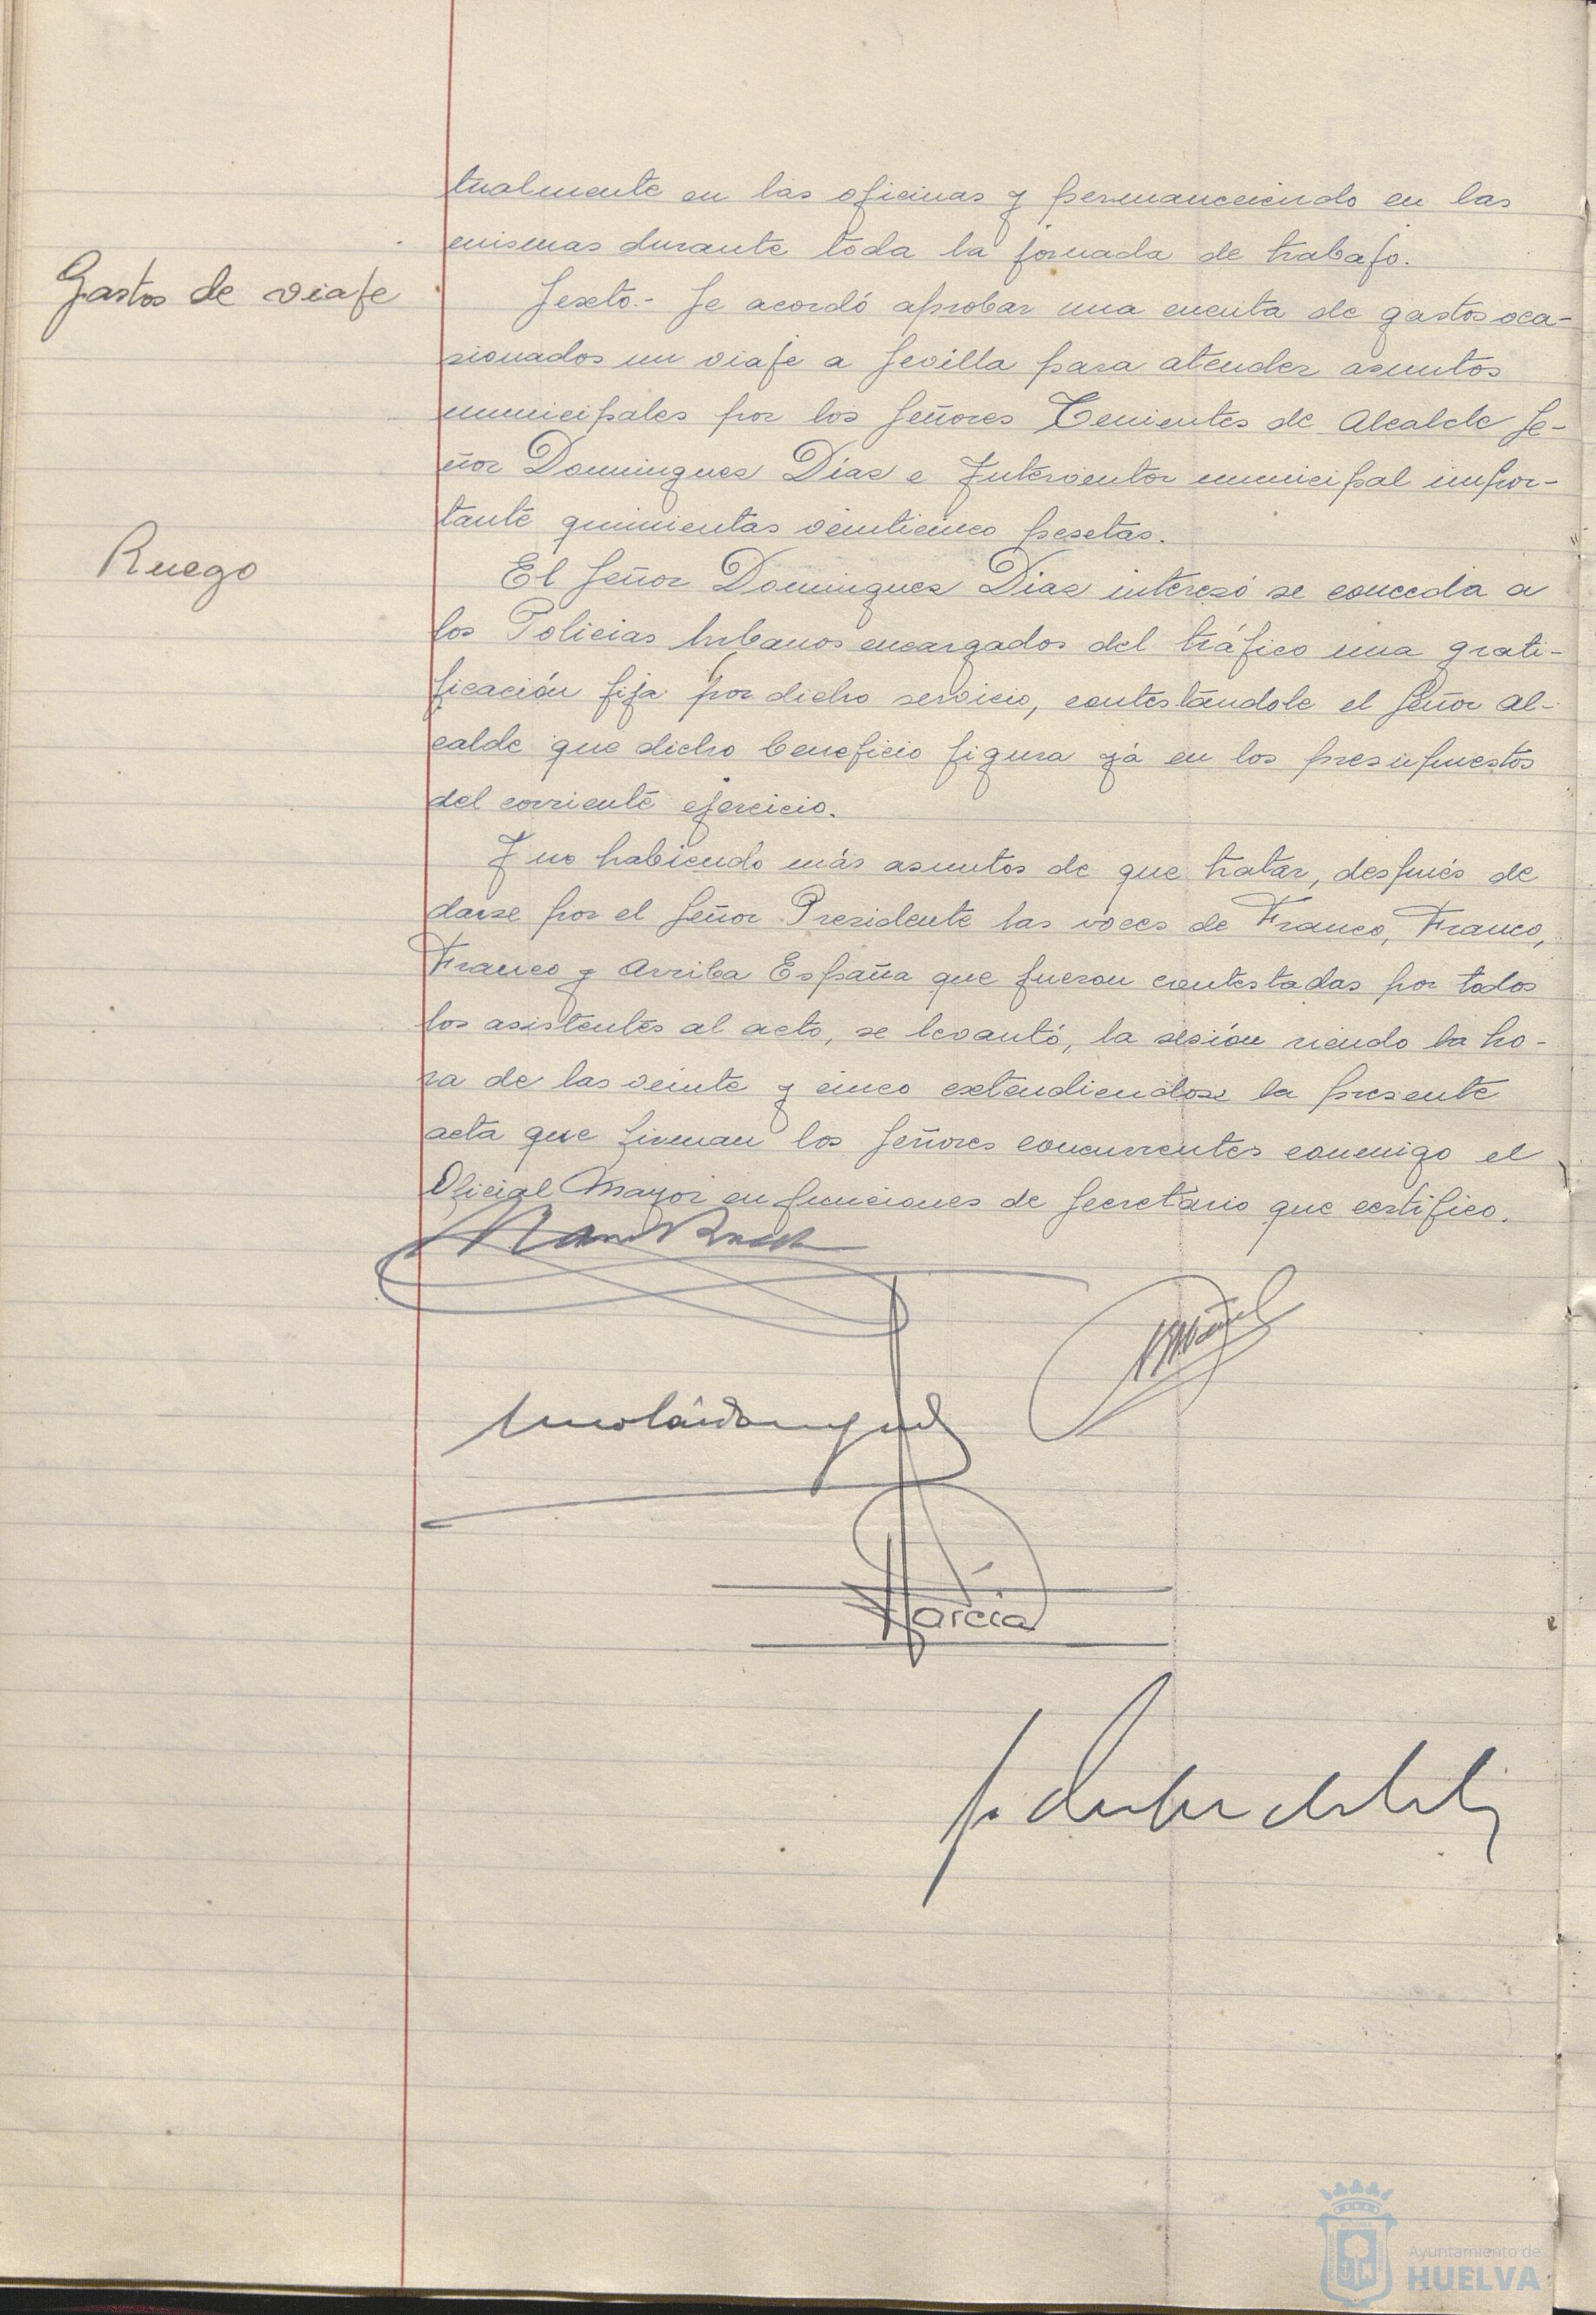 tualmente en las oficinas y permaneciendo en las
mismas durante toda la jornada de trabajo.
Gastos de viaje
Sexto.- Se acordó aprobar una cuenta de gastos oca-
sionados un viaje a Sevilla para atender asuntos
municipales por los Señores Tenientes de Alcalde Se-
ñor Dominguez Díaz e Interventor municipal impor-
tante quinientas veinticinco pesetas.
Ruego
El Señor Dominguez Diaz interesó se conceda a
los Policias Urbanos encargados del tráfico una grati-
ficación fija por dicho servicio, contestándole el Señor Al-
calde que dicho beneficio figura yá en los presupuestos
del corriente ejercicio.
Y no habiendo más asuntos de que tratar, después de
darse por el Señor Presidente las voces de Franco, Franco,
Franco y Arriba España que fueron contestadas por todos
los asistentes al acto, se levantó, la sesión siendo la ho-
ra de las veinte y cinco extendiendose la presente
acta que firman los Señores concurrentes conmigo el
Oficial Mayor en funciones de Secretario que certifico.
García
Ayuntamiento de
HUELVA